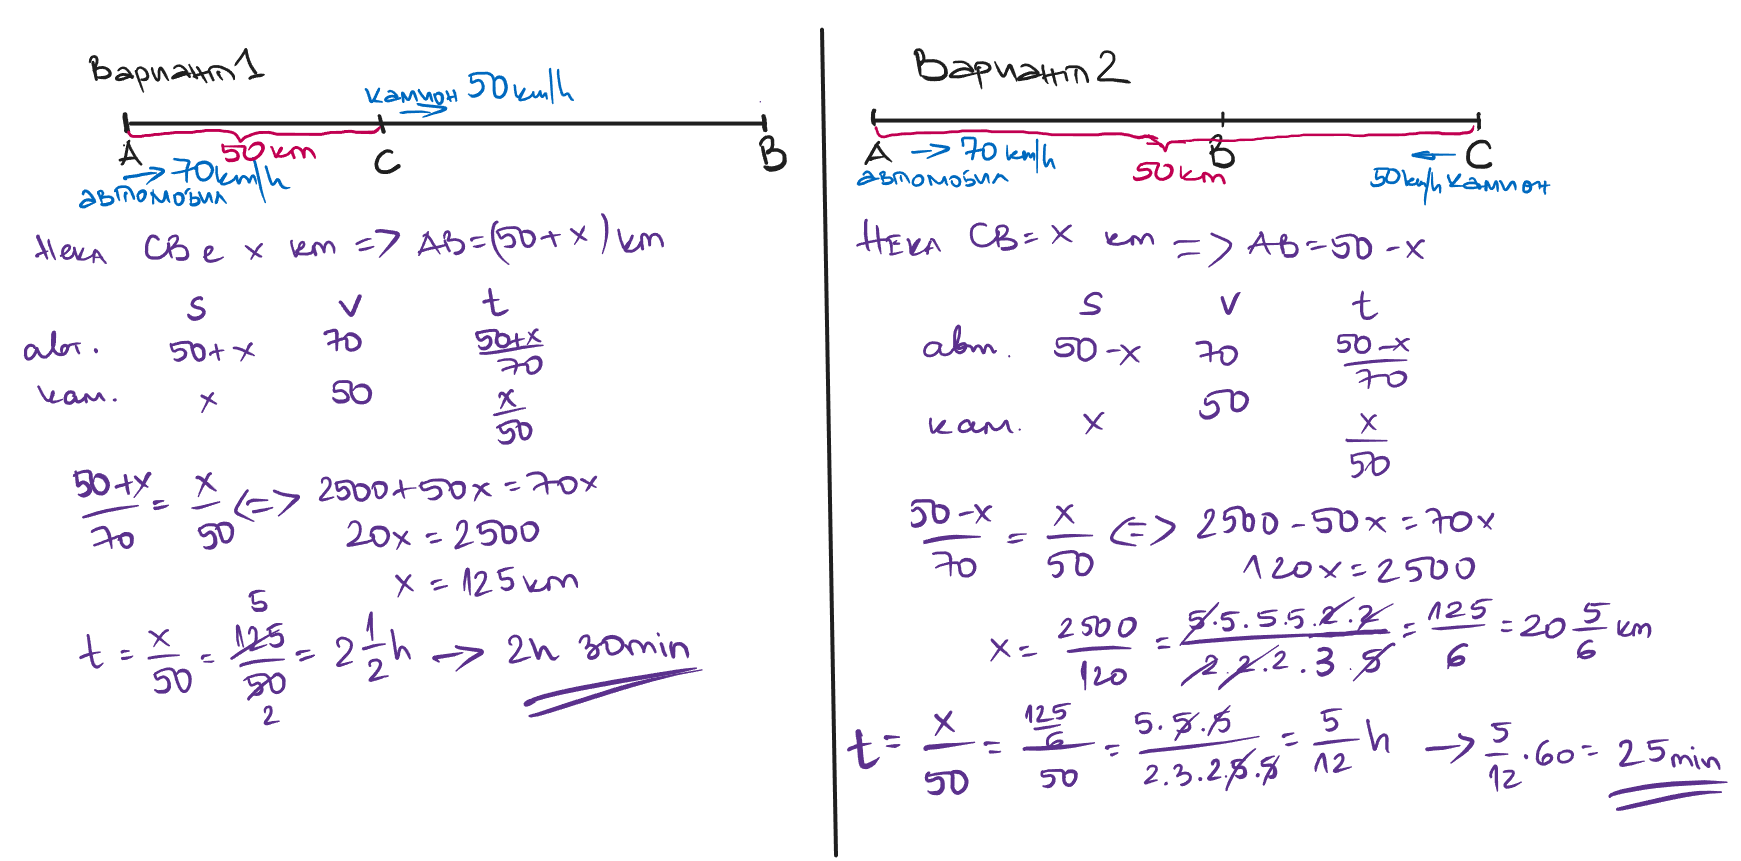 Вариант 1
камион 50 km/h
A 50 km C B
70 km/h
автомобил
Нека CB е x km => AB=(50+x) km
S V t
авт. 50+x 70 50+x/70
кам. x 50 x/50
50+x/70 = x/50 <=> 2500+50x=70x
20x=2500
x=125 km
t = x/50 = 125/50 = 2 1/2 h → 2h 30min
5
2
Вариант 2
A → 70 km/h B C
автомобил 50 km 50 km/h камион
Нека CB=x km => AB=50-x
S V t
авт. 50-x 70 50-x/70
кам. x 50 x/50
50-x/70 = x/50 <=> 2500-50x=70x
120x=2500
x = 2500/120 = 5.5.5.5.2.2/2.2.2.3.5 = 125/6 = 20 5/6 km
t = x/50 = 125/6/50 = 5.5.5/2.3.2.5.5 = 5/12 h → 5/12 . 60 = 25 min